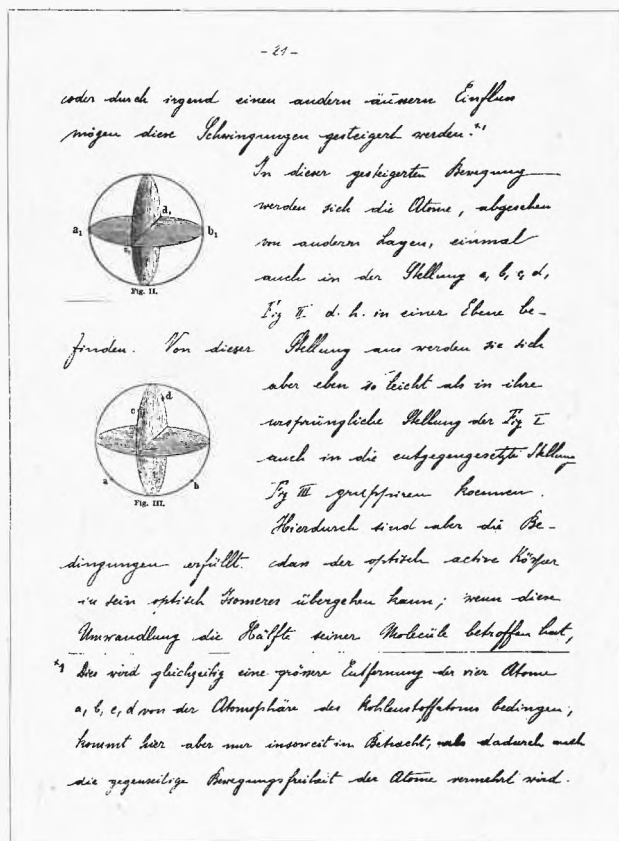 - 21 -
oder durch irgend einen andern äussern Einfluss
mögen diese Schwingungen gesteigert werden.*)
In dieser gesteigerten Bewegung
werden sich die Atome, abgesehen
von anderen Lagen, einmal
auch in der Stellung a, b, c, d,
Fig II. d. h. in einer Ebene be-
a₁ d₁ b₁ c₁
Fig. II.
finden. Von dieser Stellung aus werden sie sich
aber eben so leicht als in ihre
ursprüngliche Stellung der Fig I
auch in die entgegengesetzte Stellung
Fig III gruppiren koennen.
c d a b
Fig. III.
Hierdurch sind aber die Be-
dingungen erfüllt. dass der optisch active Körper
in sein optisch Isomeres übergehen kann; wenn diese
Umwandlung die Hälfte seiner Molecüle betroffen hat,
*) Dies wird gleichzeitig eine grössere Entfernung der vier Atome
a, b, c, d von der Atomsphäre des Kohlenstoffatoms bedingen,
kommt hier aber nur insoweit in Betracht, als dadurch auch
die gegenseitige Bewegungsfreiheit der Atome vermehrt wird.